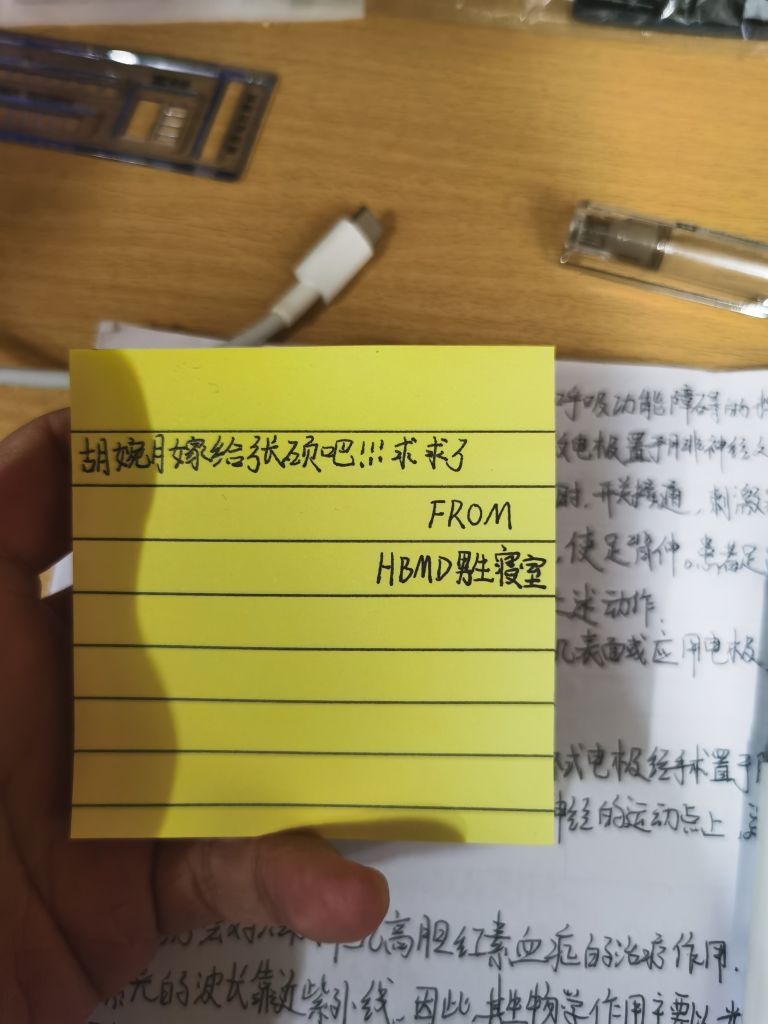 胡婉月嫁给张硕吧!!!求求了
FROM
HBMD男生寝室
呼吸功能障碍的
电极置于腓神经
时.开关接通,刺激
使足背伸。患者足
上述动作.
表面或应用电极
式电极经手术置于
神经的运动点上
高胆红素血症的治疗作用.
光的波长靠近紫外线,因此,其生物学作用主要以光